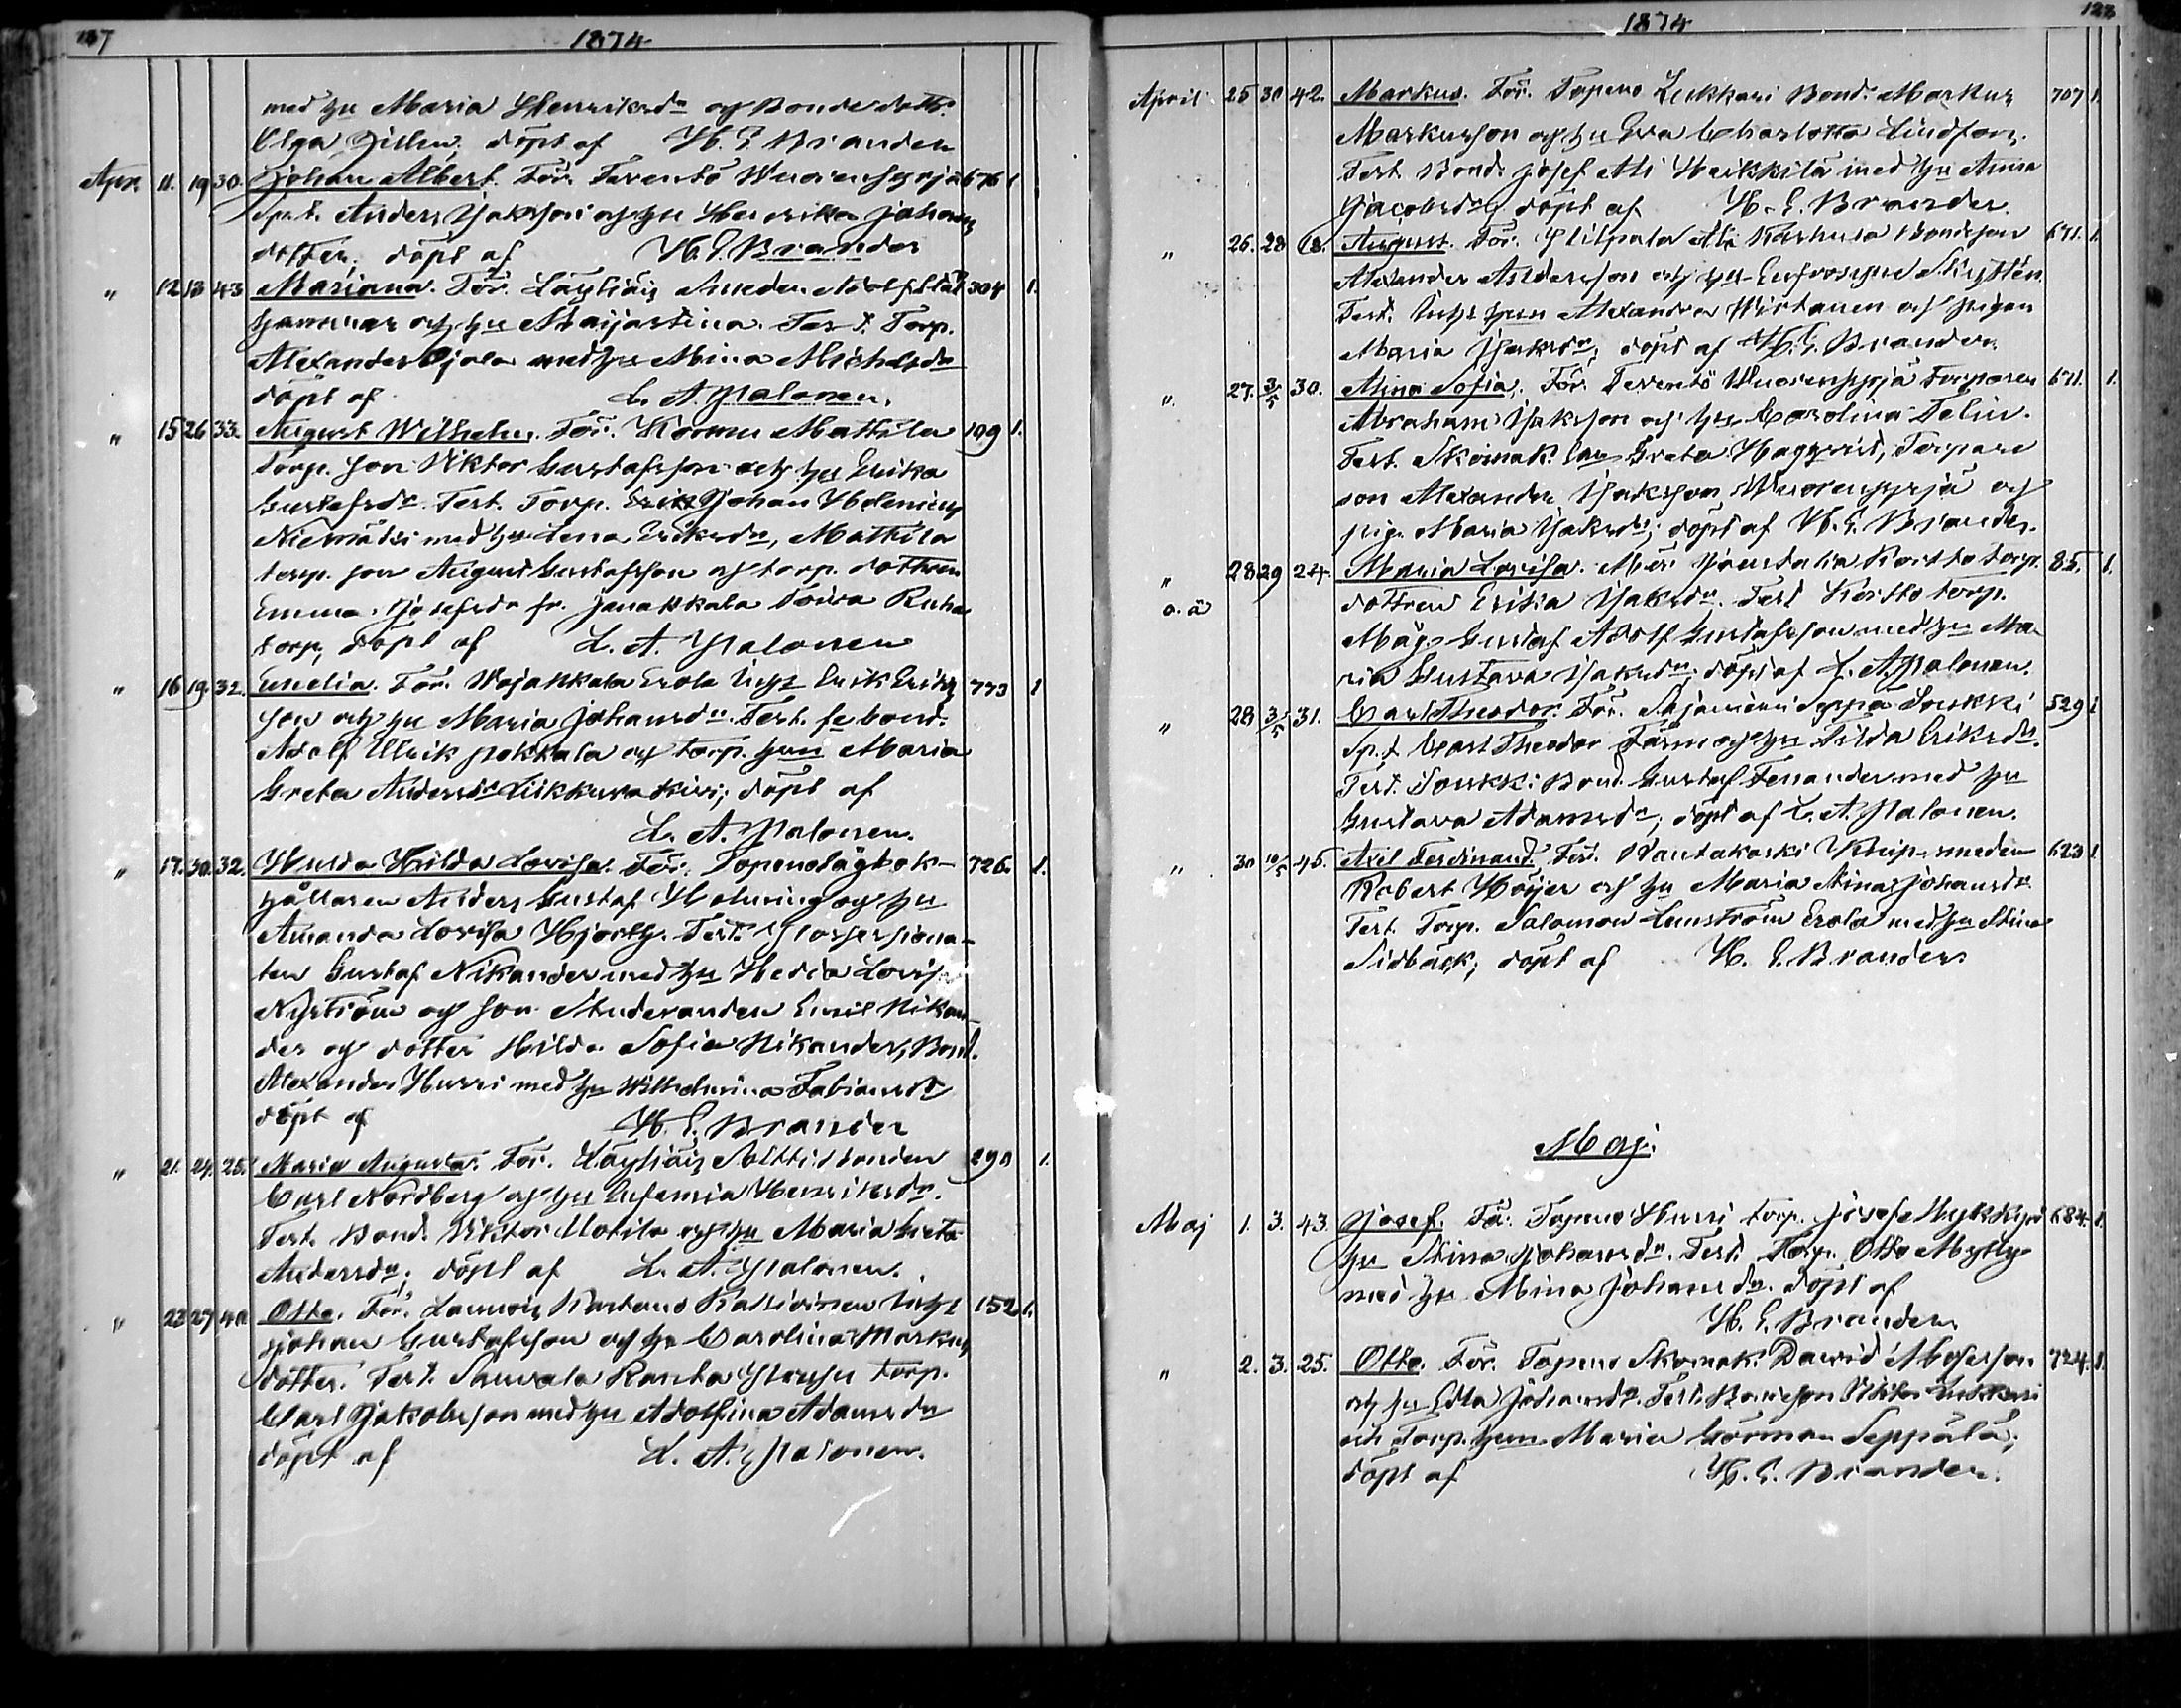 127 1874
med hu Maria Henriksdr och Bonde dottr.
Olga Zillen; döpt af H. E. Brander
Apr. 11. 19 30. Johan Albert. För. Terentö Wuorenpyrjä 676 1
Spst. Anders Jaksson och hu Henrika Johans
dotter; döpt af H. E. Brander
" 12 13 43 Mariana. För. Läyliäis Smeden Adolf Stål 304 1.
hammar och hu Maijastina. Test. Torp.
Alexander Ojala med hu Mina Michelsdr
döpt af L. A. Palonen.
" 15 26 33. August Wilhelm. För. Kormu Mattila 109 1.
Torp. son Viktor Gustafsson och hu Erika
Gustafsdr. Test. Torp. Johan Helenius
Niemäki med hu Lena Eriksdr, Mattila
torp. son August Gustafsson och torp. dottren
Emma Josefsdr fr. Janakkala Toiva Ruha
torp, döpt af L. A. Palonen
" 16 19. 32. Emelia. För. Wojakkala Erola Inhs Erik Eriks 773 1
son och hu Maria Johansdr. Test. fe bond.
Adolf Ulrik Pokkala och torp. hun Maria
Greta Andersdr Liikkuvakivi; döpt af
L. A. Palonen.
" 17. 30. 32. Hulda Hilda Lovisa. För. Topeno lägbok- 726. 1.
hållaren Anders Gustaf Holming och hu
Amanda Lovisa Hjorth. Test. Possessiona-
ten Gustaf Nikander med hu Hedda Lovisa
Nyström och son Studeranden Emil Nikan-
der och dotter Hilda Sofia Nikander, Bond.
Alexander Hurri med hu Wilhelmina Fabiansdr
döpt af H. E. Brander
" 21. 24. 25. Maria Augusta. För. Läyliäis Soltti bonden 290 1.
Carl Nordberg och hu Eufemia Henriksdr.
Test. Bond. Viktor Uotila och hu Maria Greta
Andersdr; döpt af L. A. Palonen.
" 23 27 40 Otto. För. Launois Kartano Inhs 152 1.
Johan Gustafsson och hu Carolina Markus
dotter. Test. Sauvala Ranta torp.
Carl Jakobsson med hu Adolfina Adamsdr
döpt af L. A. Palonen.
1874 128
April 25 30 42. Markus. För. Topeno Lukkari Bond. Markus 707 1.
Markusson och hu Eva Charlotta Lindfors.
Test. Bond. Josef Ali Heikkilä med hu Anna
Jacobsdr; döpt af H. E. Brander.
" 26. 28 18. August. För. Pilpala Ali Karhula Bondeson 671. 1.
Alexander Andersson och hu Eufrosyne Skyttén.
Test. Inhs hun Alexandra Wirtanen och pigan
Maria Jaksdr; döpt af H. E. Brander.
" 27. 3/5 30. Mina Sofia. För. Terentö Wuorenpyrjä Torparen 671. 1.
Abraham Jaksson och hu Carolina Felin.
Test. Skomak. Enk Greta Hagqvist, Torpare
son Alexander Jaksson Wuorenpyrjä och
pig. Maria Jaksdr; döpt af H. E. Brander.
" 28 29 24. Maria Lovisa. Mor: Kortto torp. 85. 1.
o. ä dottren Erika Jaksdr. Test Kortto torp.
Måg Gustaf Adolf Gustafsson med hu Ma-
ria Gustava Jaksdr; döpt af L. A. Palonen.
" 28 3/5 31. Carl Theodor. För. Sajaniemi Seppä Soukki 529 1
Sp.t Carl Theodor Färm och hu Tilda Eriksdr.
Test. Soukki Bond. Gustaf Fenander med hu
Gustava Adamsdr; döpt af L. A. Palonen.
" 30 10/5 45. Axel Ferdinand. För. Wantakoski Knipsmeden 623 1
Robert Höijer och hu Maria Stina Johansdr
Test. Torp. Salomon Lemström Erola med hu Stina
Sidbäck; döpt af H. E. Brander
Maj:
Maj 1. 3. 43. Josef. För. Topeno Hurri torp. Josef Nykki och 684. 1.
hu Stina Johansdr. Test. Torp. Otto Mylly
med hu Mina Johansdr. döpt af
H. E. Brander
" 2. 3. 25. Otto. För. Topeno Skomak. David Mosesson 724. 1.
och hu Edla Johansdr. Test. Bondeson Viktor Lukkari
och Torp. hun Maria Görman Seppälä;
döpt af H. E. Brander.